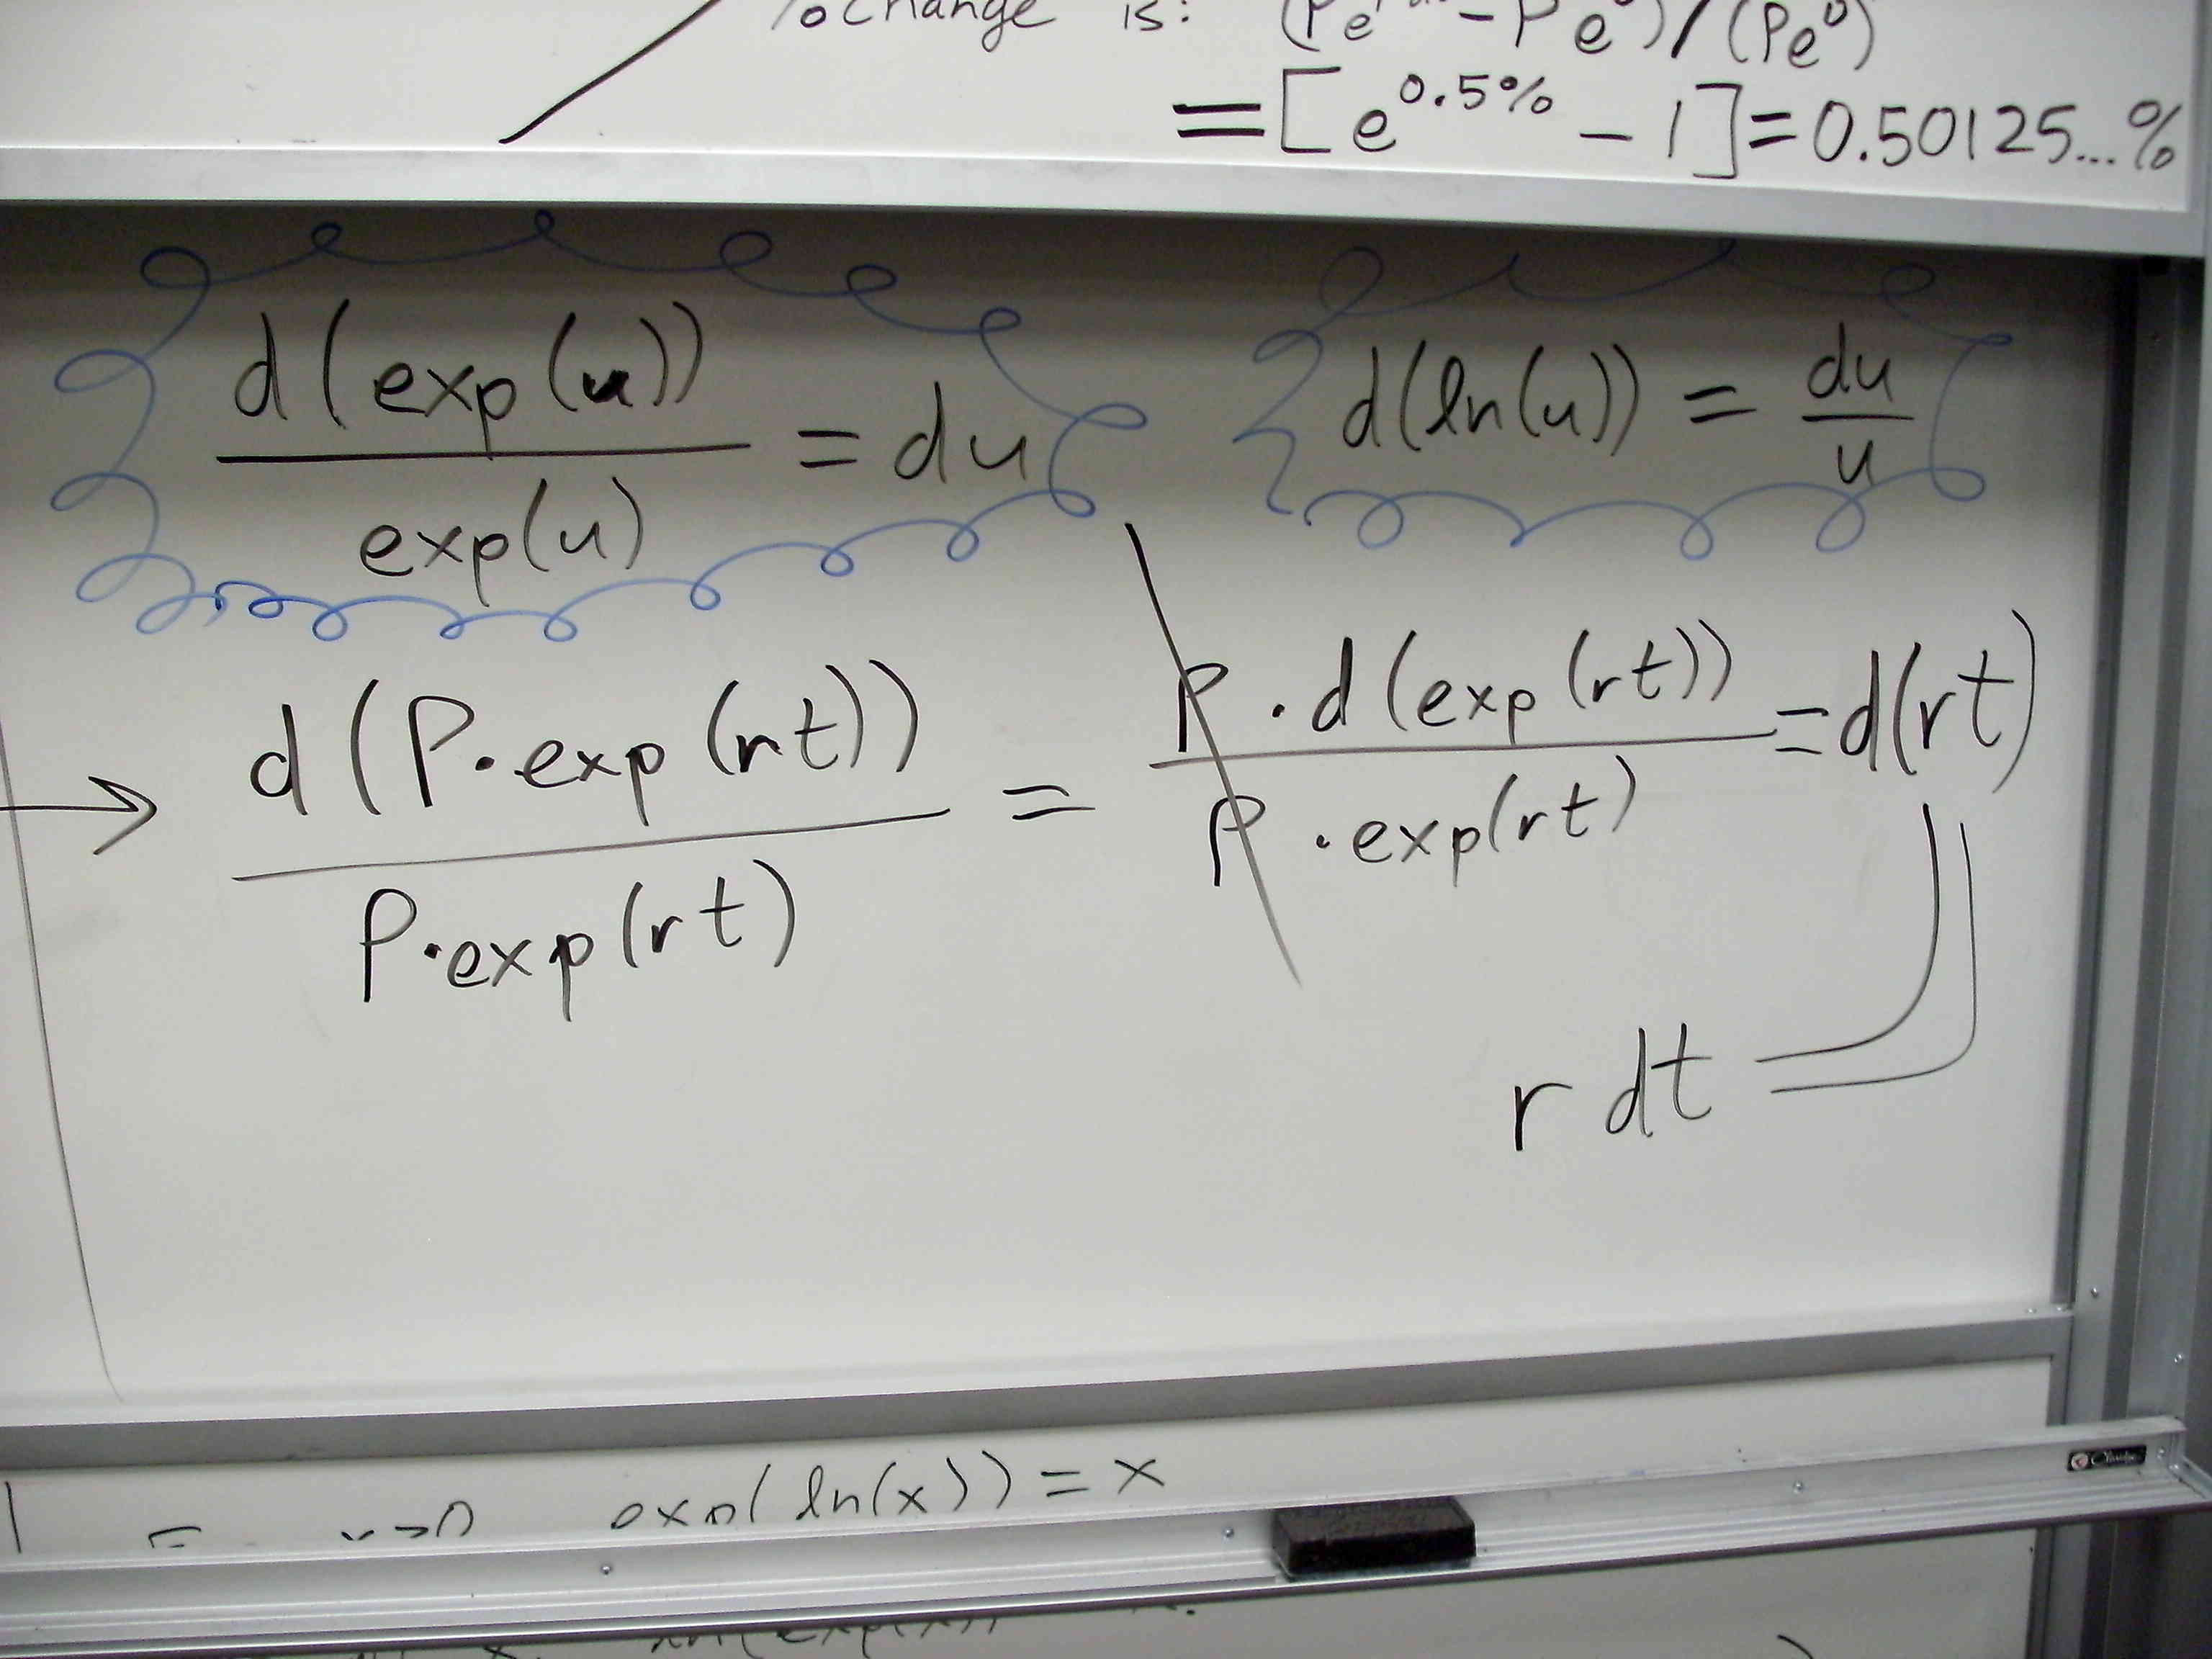 % change is: (Pe - Pe⁰)/(Pe⁰)
= [e^0.5% - 1] = 0.50125...%
d(exp(u)) / exp(u) = du
d(ln(u)) = du/u
→ d(P·exp(rt)) / P·exp(rt) = P·d(exp(rt)) / P·exp(rt) = d(rt)
= r dt
exp(ln(x)) = x